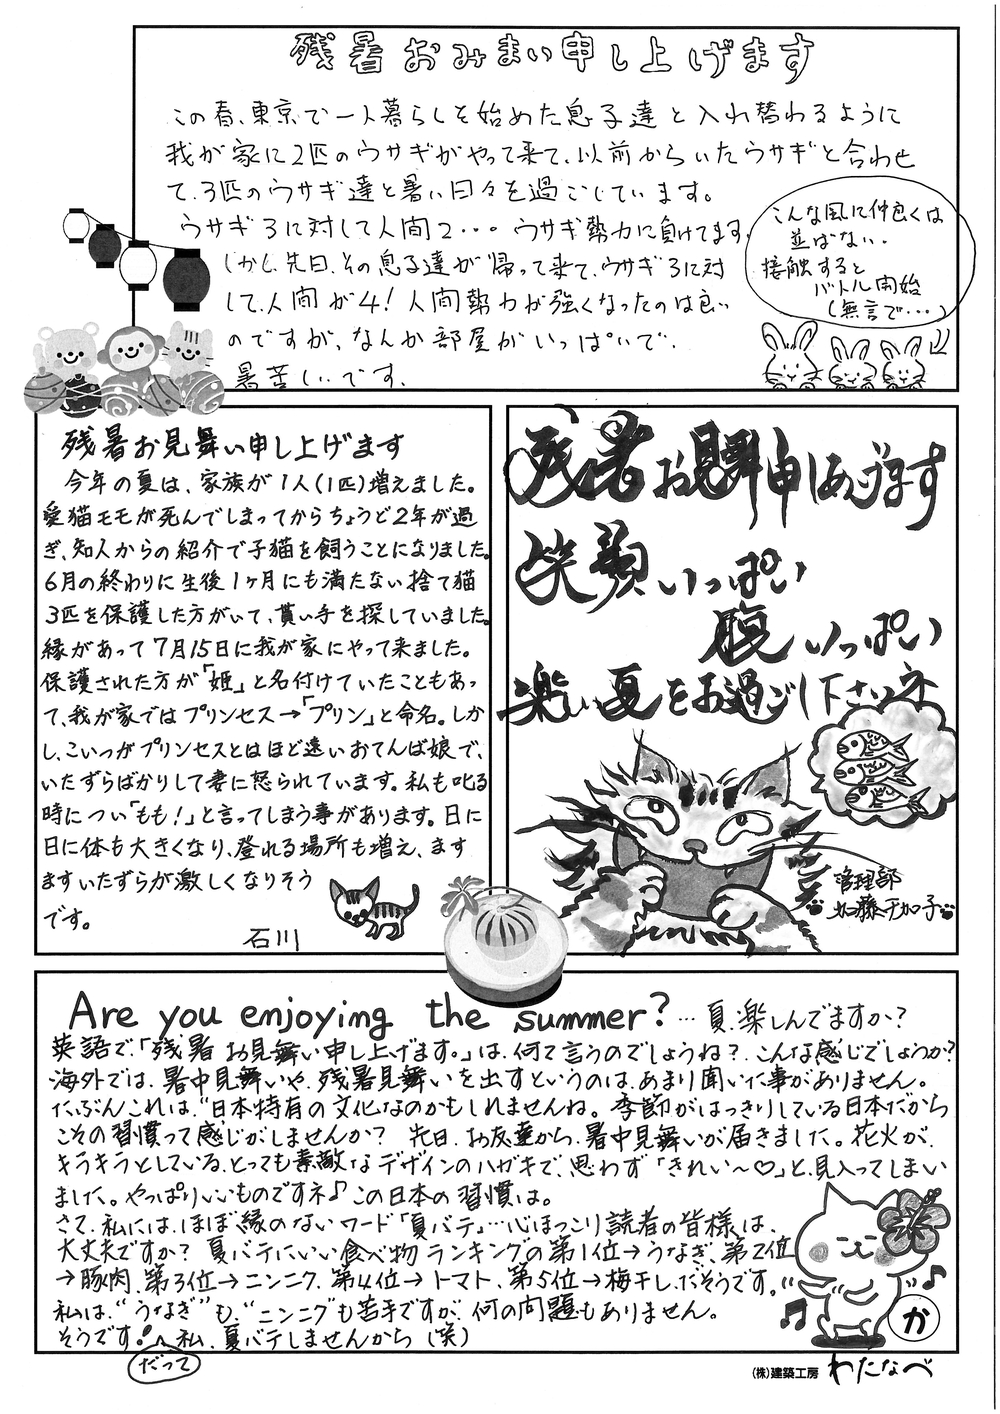 残暑おみまい申し上げます
この春、東京で一人暮らしを始めた息子達と入れ替わるように
我が家に2匹のウサギがやって来て、以前からいたウサギと合わせ
て、3匹のウサギ達と暑い日々を過ごしています。
ウサギ3に対して人間2・・・ウサギ勢力に負けてます。
しかし先日、その息子達が帰って来て、ウサギ3に対
して、人間が4!人間勢力が強くなったのは良い
のですが、なんか部屋がいっぱいで、
暑苦しいです。
こんな風に仲良くは
並ばない。
接触すると
バトル開始
(無言で・・・)
残暑お見舞い申し上げます
今年の夏は、家族が1人(1匹)増えました。
愛猫モモが死んでしまってからちょうど2年が過
ぎ、知人からの紹介で子猫を飼うことになりました。
6月の終わりに生後1ヶ月にも満たない捨て猫
3匹を保護した方がいて、貰い手を探していました。
縁があって7月15日に我が家にやって来ました。
保護された方が「姫」と名付けていたこともあっ
て、我が家ではプリンセス→「プリン」と命名。しか
し、こいつがプリンセスとはほど遠いおてんば娘で、
いたずらばかりして妻に怒られています。私も叱る
時につい「もも!」と言ってしまう事があります。日に
日に体も大きくなり、登れる場所も増え、ます
ますいたずらが激しくなりそう
です。
石川
残暑お見舞申しあげます
笑顔いっぱい
腹いっぱい
楽しい夏をお過ごし下さいネ
管理部
加藤千加子
Are you enjoying the summer? … 夏、楽しんでますか?
英語で、「残暑お見舞い申し上げます。」は、何て言うのでしょうね?こんな感じでしょうか?
海外では、暑中見舞いや、残暑見舞いを出すというのは、あまり聞いた事がありません。
たぶんこれは、“日本特有の文化なのかもしれませんね。季節がはっきりしている日本だから
こその習慣って感じがしませんか? 先日、お友達から、暑中見舞いが届きました。花火が、
キラキラとしている、とっても素敵なデザインのハガキで、思わず「きれい～♡」と、見入ってしまい
ました。やっぱりいいものですネ♪この日本の習慣は。
さて、私には、ほぼ縁のないワード「夏バテ」…心ほっこり読者の皆様は、
大丈夫ですか? 夏バテにいい食べ物ランキングの第1位→うなぎ、第2位
→豚肉、第3位→ニンニク、第4位→トマト、第5位→梅干し、だそうです。
私は、“うなぎ”も、“ニンニク”も苦手ですが、何の問題もありません。
そうです!だって私、夏バテしませんから(笑)
か
(株)建築工房 わたなべ